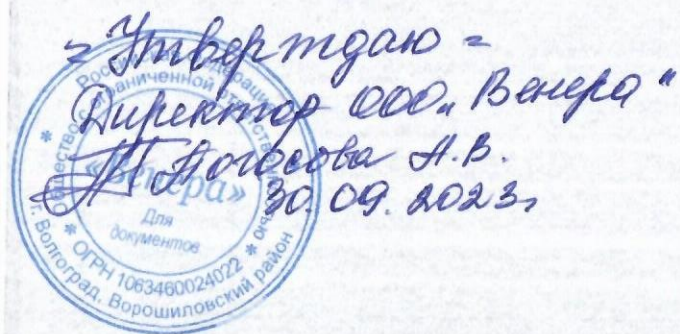 = Утверждаю =
Директор ООО „Венера“
Погосова А.В.
30.09.2023г
Российская Федерация
Общество с ограниченной ответственностью
«Венера»
Для
документов
* ОГРН 1063460024022 *
г. Волгоград, Ворошиловский район